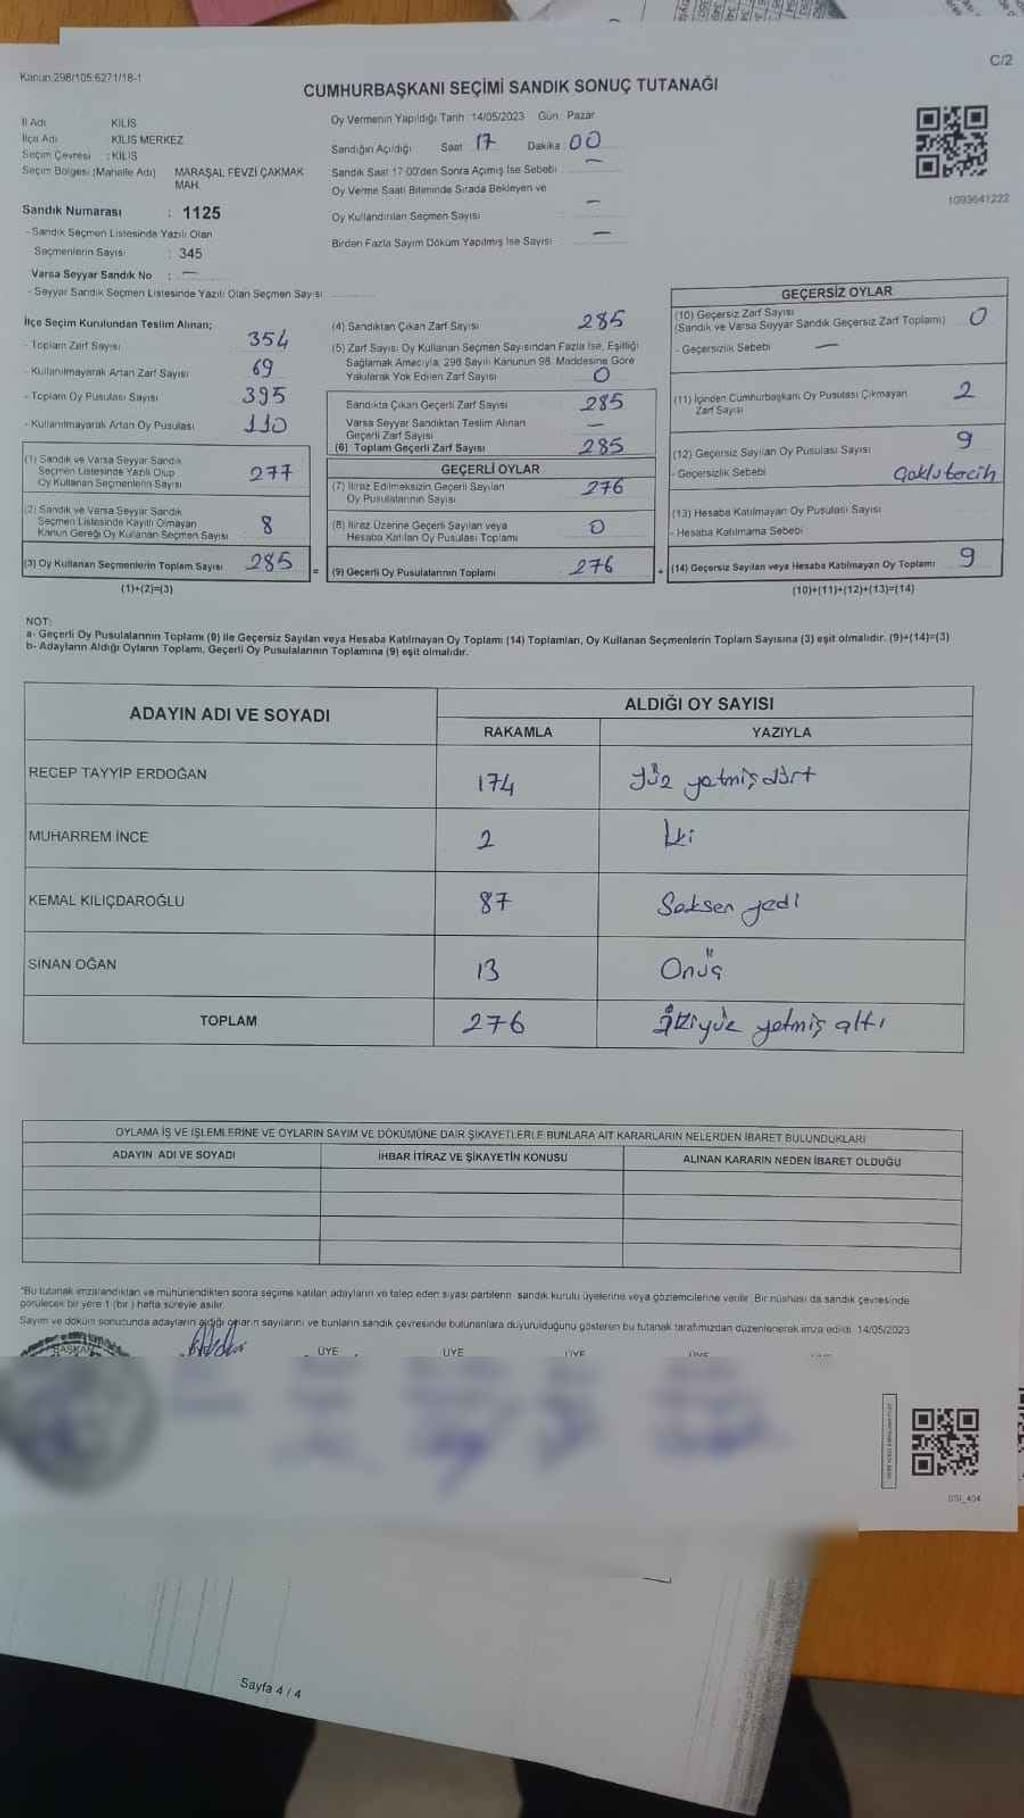 C/2
Kanun:298/105:6271/18-1
CUMHURBAŞKANI SEÇİMİ SANDIK SONUÇ TUTANAĞI
İl Adı KİLİS
İlçe Adı KİLİS MERKEZ
Seçim Çevresi : KİLİS
Seçim Bölgesi (Mahalle Adı) MARAŞAL FEVZİ ÇAKMAK
MAH.
Sandık Numarası : 1125
- Sandık Seçmen Listesinde Yazılı Olan
Seçmenlerin Sayısı : 345
Varsa Seyyar Sandık No : —
- Seyyar Sandık Seçmen Listesinde Yazılı Olan Seçmen Sayısı
Oy Vermenin Yapıldığı Tarih :14/05/2023 Gün: Pazar
Sandığın Açıldığı Saat 17 Dakika: 00
Sandık Saat 17:00'den Sonra Açılmış İse Sebebi : —
Oy Verme Saati Bitiminde Sırada Bekleyen ve
Oy Kullandırılan Seçmen Sayısı —
Birden Fazla Sayım Döküm Yapılmış İse Sayısı —
1093641222
İlçe Seçim Kurulundan Teslim Alınan;
- Toplam Zarf Sayısı 354
- Kullanılmayarak Artan Zarf Sayısı 69
- Toplam Oy Pusulası Sayısı 395
- Kullanılmayarak Artan Oy Pusulası 110
(1) Sandık ve Varsa Seyyar Sandık
Seçmen Listesinde Yazılı Olup
Oy Kullanan Seçmenlerin Sayısı 277
(2) Sandık ve Varsa Seyyar Sandık
Seçmen Listesinde Kayıtlı Olmayan
Kanun Gereği Oy Kullanan Seçmen Sayısı 8
(3) Oy Kullanan Seçmenlerin Toplam Sayısı 285
(1)+(2)=(3)
(4) Sandıktan Çıkan Zarf Sayısı 285
(5) Zarf Sayısı Oy Kullanan Seçmen Sayısından Fazla İse, Eşitliği
Sağlamak Amacıyla, 298 Sayılı Kanunun 98. Maddesine Göre
Yakılarak Yok Edilen Zarf Sayısı 0
Sandıkta Çıkan Geçerli Zarf Sayısı 285
Varsa Seyyar Sandıktan Teslim Alınan
Geçerli Zarf Sayısı —
(6) Toplam Geçerli Zarf Sayısı 285
GEÇERLİ OYLAR
(7) İtiraz Edilmeksizin Geçerli Sayılan
Oy Pusulalarının Sayısı 276
(8) İtiraz Üzerine Geçerli Sayılan veya
Hesaba Katılan Oy Pusulası Toplamı 0
= (9) Geçerli Oy Pusulalarının Toplamı 276
GEÇERSİZ OYLAR
(10) Geçersiz Zarf Sayısı
(Sandık ve Varsa Seyyar Sandık Geçersiz Zarf Toplamı) 0
- Geçersizlik Sebebi —
(11) İçinden Cumhurbaşkanı Oy Pusulası Çıkmayan
Zarf Sayısı 2
(12) Geçersiz Sayılan Oy Pusulası Sayısı 9
- Geçersizlik Sebebi Çoklu tercih
(13) Hesaba Katılmayan Oy Pusulası Sayısı
- Hesaba Katılmama Sebebi
+ (14) Geçersiz Sayılan veya Hesaba Katılmayan Oy Toplamı 9
(10)+(11)+(12)+(13)=(14)
NOT:
a- Geçerli Oy Pusulalarının Toplamı (9) ile Geçersiz Sayılan veya Hesaba Katılmayan Oy Toplamı (14) Toplamları, Oy Kullanan Seçmenlerin Toplam Sayısına (3) eşit olmalıdır. (9)+(14)=(3)
b- Adayların Aldığı Oyların Toplamı, Geçerli Oy Pusulalarının Toplamına (9) eşit olmalıdır.
ADAYIN ADI VE SOYADI ALDIĞI OY SAYISI
RAKAMLA YAZIYLA
RECEP TAYYİP ERDOĞAN 174 Yüz yetmiş dört
MUHARREM İNCE 2 İki
KEMAL KILIÇDAROĞLU 87 Seksen yedi
SİNAN OĞAN 13 Onüç
TOPLAM 276 İkiyüz yetmiş altı
OYLAMA İŞ VE İŞLEMLERİNE VE OYLARIN SAYIM VE DÖKÜMÜNE DAİR ŞİKAYETLERLE BUNLARA AİT KARARLARIN NELERDEN İBARET BULUNDUKLARI
ADAYIN ADI VE SOYADI İHBAR İTİRAZ VE ŞİKAYETİN KONUSU ALINAN KARARIN NEDEN İBARET OLDUĞU
*Bu tutanak imzalandıktan ve mühürlendikten sonra seçime katılan adayların ve talep eden siyasi partilerin sandık kurulu üyelerine veya gözlemcilerine verilir. Bir nüshası da sandık çevresinde
görülecek bir yere 1 (bir) hafta süreyle asılır.
Sayım ve döküm sonucunda adayların aldığı oyların sayılarını ve bunların sandık çevresinde bulunanlara duyurulduğunu gösteren bu tutanak tarafımızdan düzenlenerek imza edildi. 14/05/2023
BAŞKAN ÜYE ÜYE ÜYE ÜYE
Sayfa 4 / 4